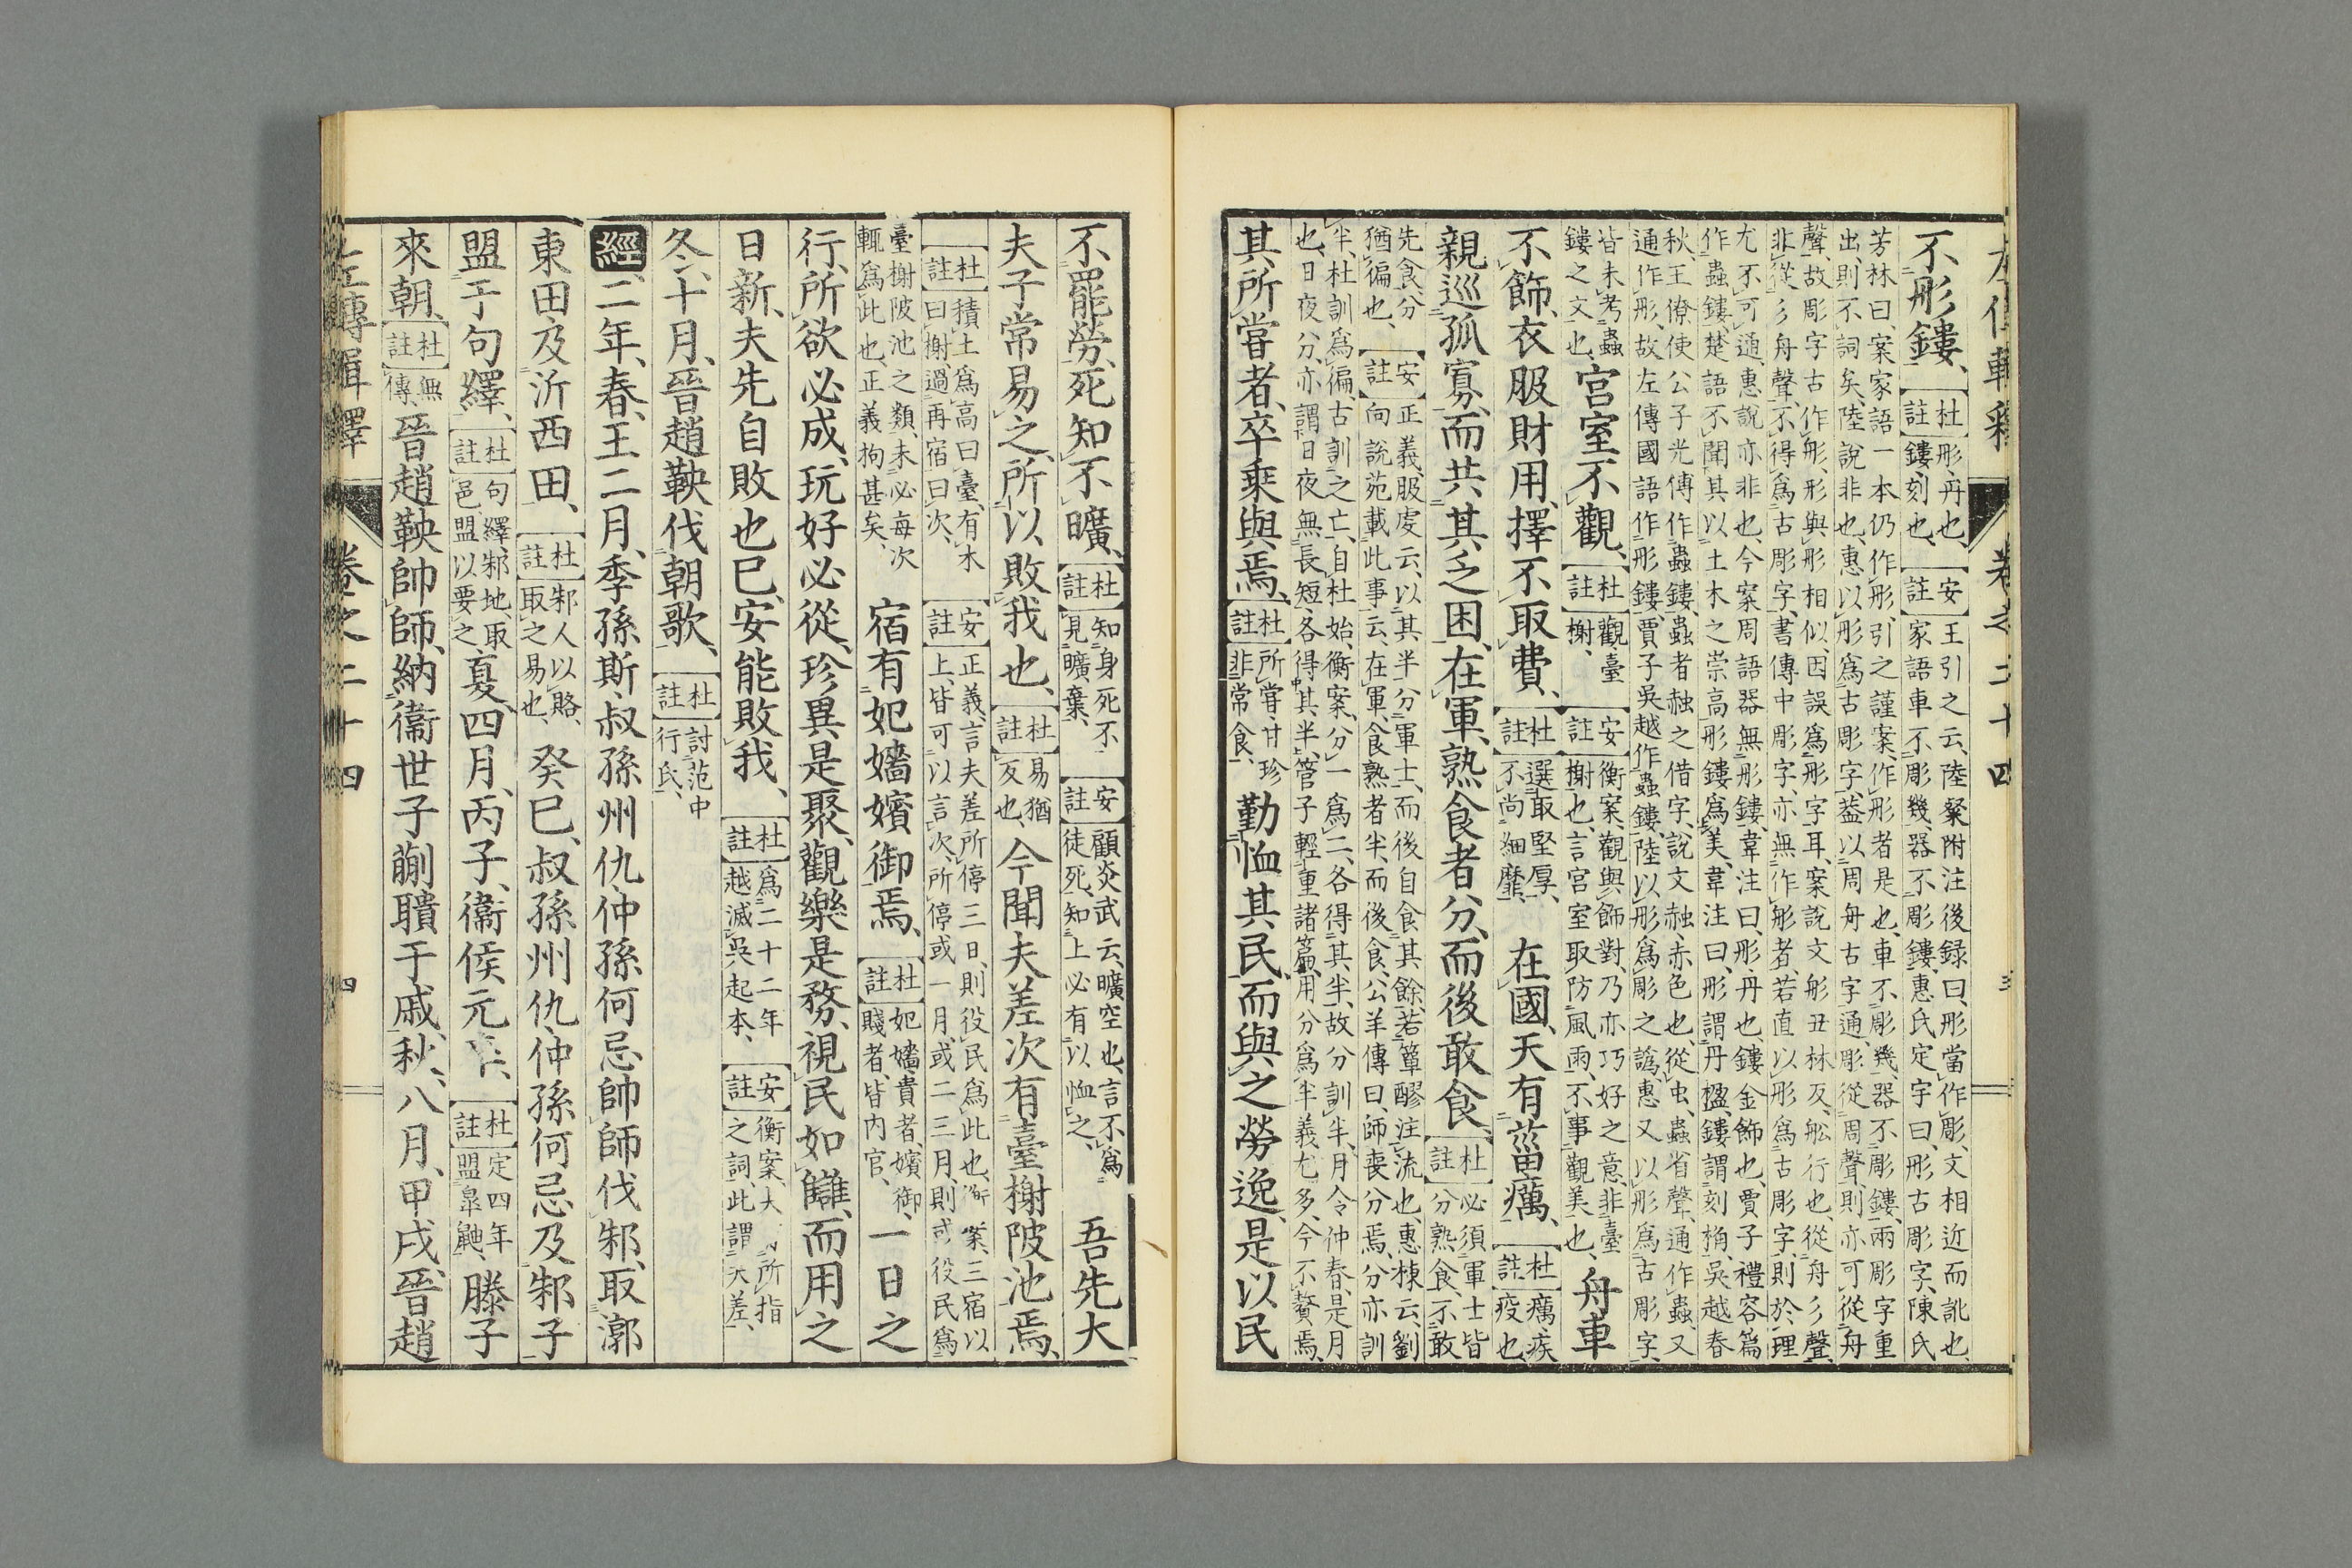 左傳輯釋 卷之二十四 三
不彤鏤、[杜註]彤、丹也、鏤、刻也、[安註]王引之云、陸粲附注後録曰、彤當作彫、文相近而訛也、家語車不彫幾、器不彫鏤、惠氏定宇曰、彤古彫字、陳氏
芳林曰、案家語一本仍作彤、引之謹案、作彤者是也、車不彫幾、器不彫鏤、兩彫字重
出、則不詞矣、陸說非也、惠以彤爲古彫字、蓋以周舟古字通、彫從周聲、則亦可從舟
聲、故彫字古作舩、彤與彤相似、因誤爲彤字耳、案說文彤丑林反、舩行也、從舟彡聲、
非從彡舟聲、不得爲古彫字、書傳中彫字、亦無作彤者、若直以彤爲古彫字、則於理
尤不可通、惠說亦非也、今案周語器無彤鏤、韋注曰、彤、丹也、鏤金飾也、賈子禮容篇
作蟲鏤、楚語不聞其以土木之崇高彤鏤爲美、韋注曰、彤謂丹楹、鏤謂刻桷、吳越春
秋、王僚使公子光傳作蟲鏤、蟲者赨之借字、說文赨、赤色也、從虫、蟲省聲、通作蟲、又
通作彤、故左傳國語作彤鏤、賈子吳越作蟲鏤、陸以彤爲彫之譌、惠又以彤爲古彫字、
皆未考蟲鏤之文也、宮室不觀、[杜註]觀、臺榭、[安註]衡案、觀與飾對、乃亦巧好之意、非臺榭也、言宮室取防風雨、不事觀美也、舟車
不飾、衣服財用、擇不取費、[杜註]選取堅厚、不尚細靡、在國、天有菑癘、[杜註]癘、疾疫也、
親巡孤寡、而共其乏困、在軍、熟食者分、而後敢食、[杜註]必須軍士皆分熟食、不敢
先食、分猶徧也、[安註]正義、服虔云、以其半分軍士、而後自食其餘、若簞醪注流也、惠棟云、劉向說苑載此事云、在軍、食熟者半、而後食、公羊傳曰、師喪分焉、分亦訓
半、杜訓爲徧、古訓之亡、自杜始、衡案、分一爲二、各得其半、故分訓半、月令仲春、是月
也、日夜分、亦謂日夜無長短、各得其半、管子輕重諸篇、用分爲半義尤多、今不贅焉、
其所嘗者、卒乘與焉、[杜註]所嘗、甘珍非常食、勤恤其民、而與之勞逸、是以民
不罷勞、死知不曠、[杜註]知身死不見曠棄、[安註]顧炎武云、曠空也、言不爲徒死、知上必有以恤之、吾先大
夫子常易之、所以敗我也、[杜註]易猶反也、今聞夫差次有臺榭陂池焉、
[杜註]積土爲高曰臺、有木曰榭、過再宿曰次、[安註]正義、言夫差所停三日、則役民爲此也、衡案、三宿以上、皆可以言次、所停或一月、或二三月、則或役民爲
臺榭陂池之類、未必每次輒爲此也、正義拘甚矣、宿有妃嬙嬪御焉、[杜註]妃嬙、貴者、嬪御、賤者、皆内官、一日之
行、所欲必成、玩好必從、珍異是聚、觀樂是務、視民如讎、而用之
日新、夫先自敗也已、安能敗我、[杜註]爲二十二年越滅吳起本、[安註]衡案、夫所指之詞、此謂夫差、
冬、十月、晉趙鞅伐朝歌、[杜註]討范中行氏、
經、二年、春、王二月、季孫斯、叔孫州仇、仲孫何忌、帥師伐邾、取漷
東田、及沂西田、[杜註]邾人以賂、取之易也、癸巳、叔孫州仇、仲孫何忌、及邾子
盟于句繹、[杜註]句繹、邾地、取邑盟以要之、夏、四月、丙子、衞侯元卒、[杜註]定四年盟皋鼬、滕子
來朝、[杜註]無傳、晉趙鞅帥師、納衞世子蒯聵于戚、秋、八月、甲戌、晉趙
左傳輯釋 卷之二十四 四